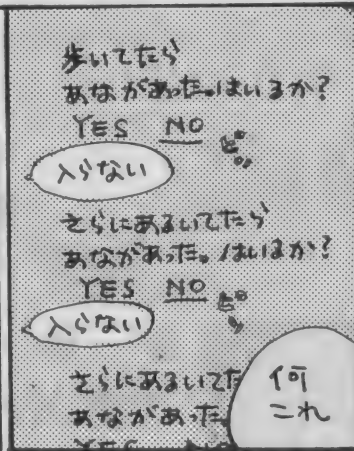 歩いてたら
あながあった。はいるか?
YES NO
ピッ
入らない
さらにあるいてたら
あながあった。はいるか?
YES NO
ピッ
入らない
さらにあるいてた
あながあった
YES NO
何
これ